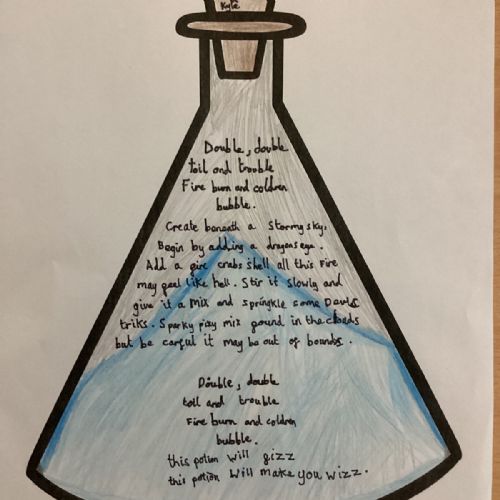 Kyle
Double, double
toil and trouble
Fire burn and coldren
bubble.
Create beneath a stormy sky,
Begin by adding a dragons eye.
Add a gire crabs shell all this fire
may feel like hell. Stir it slowly and
give it a mix and springkle some Devls
triks. Sparky mix pound in the clouds
but be carful it may be out of bounds.
Double, double
toil and trouble
Fire burn and coldren
bubble.
this potion will gizz
this potion will make you wizz.